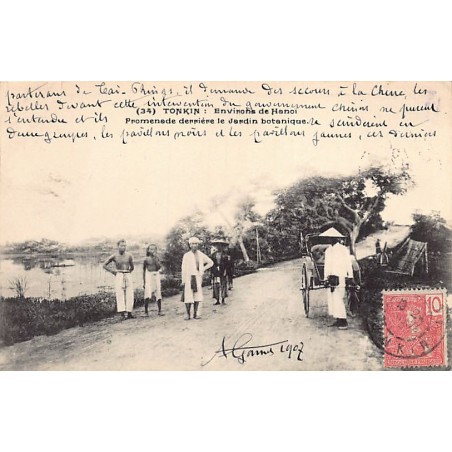 partisans de Taï-Phings, il demande des secours à la Chine, les
rebelles devant cette intervention du gouvernement chinois ne purent
(34) TONKIN : Environs de Hanoï
s'entendre et ils se scindèrent en
Promenade derrière le Jardin botanique.
deux groupes, les pavillons noirs et les pavillons jaunes, ces derniers
1907
10